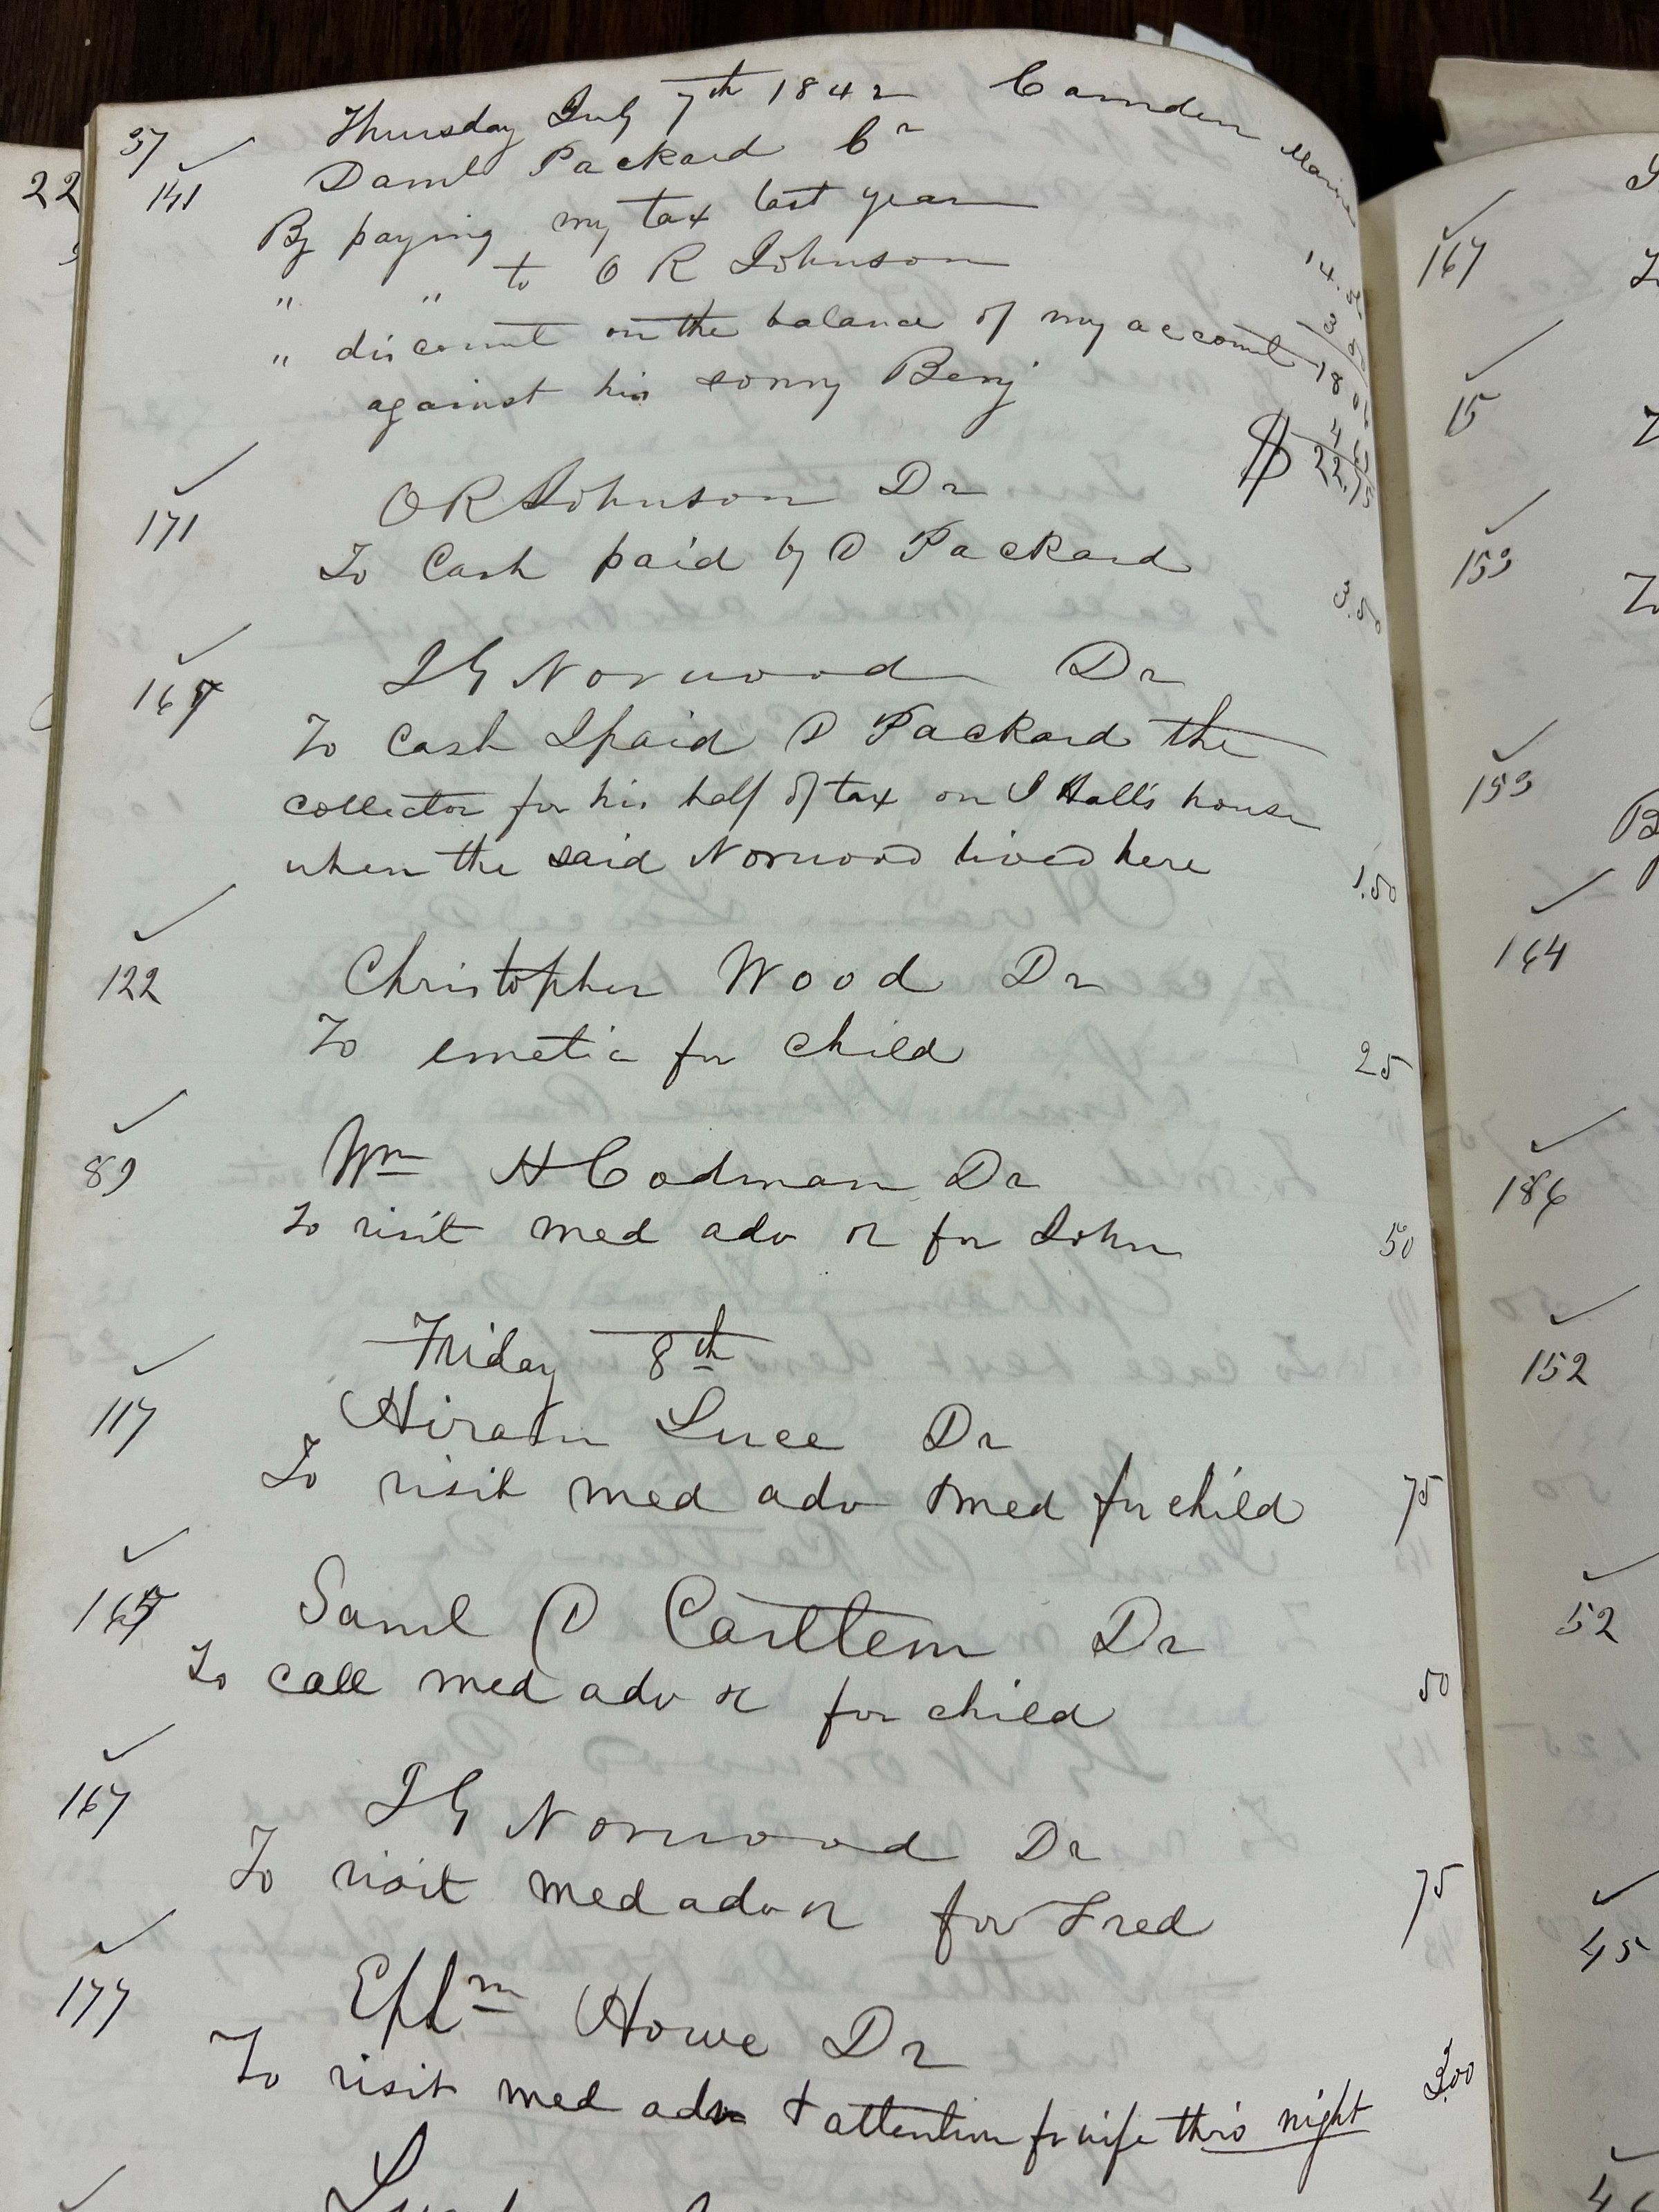 37 Thursday July 7th 1842 Camden Maine
141 Daml Packard Cr
By paying my tax last year 14.5
" " to O R Johnson 3 50
" discount on the balance of my account 18 0
against his sonny Benj 4
$ 22.75
171 O R Johnson Dr
To Cash paid by D Packard 3.50
167 J G Norwood Dr
To Cash I paid D Packard the
collector for his half of tax on J Hall's house
when the said Norwood lived here 1.50
122 Christopher Wood Dr
To emetic for child 25
89 Wm H Codman Dr
To visit med adv & for John 50
Friday 8th
117 Hiram Luce Dr
To visit med adv & med for child 75
Saml D Carltem Dr
To call med adv & for child 50
167 J G Norwood Dr
To visit med adv & for Fred 75
177 Ephm Howe Dr
To visit med adv & attention for wife this night 3.00
22
167
15
153
153
164
186
152
52
45